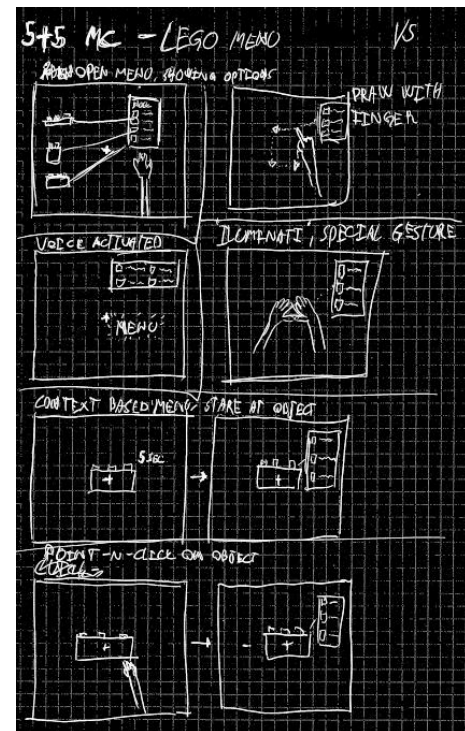 5+5 MC - LEGO MENU
1/5
OPEN MENU, SHOWING OPTIONS
DRAW WITH
FINGER
VOICE ACTIVATED
"MENU"
"ILUMINATI", SPECIAL GESTURE
CONTEXT BASED MENU, STARE AT OBJECT
5 SEC
POINT-N-CLICK ON OBJECT